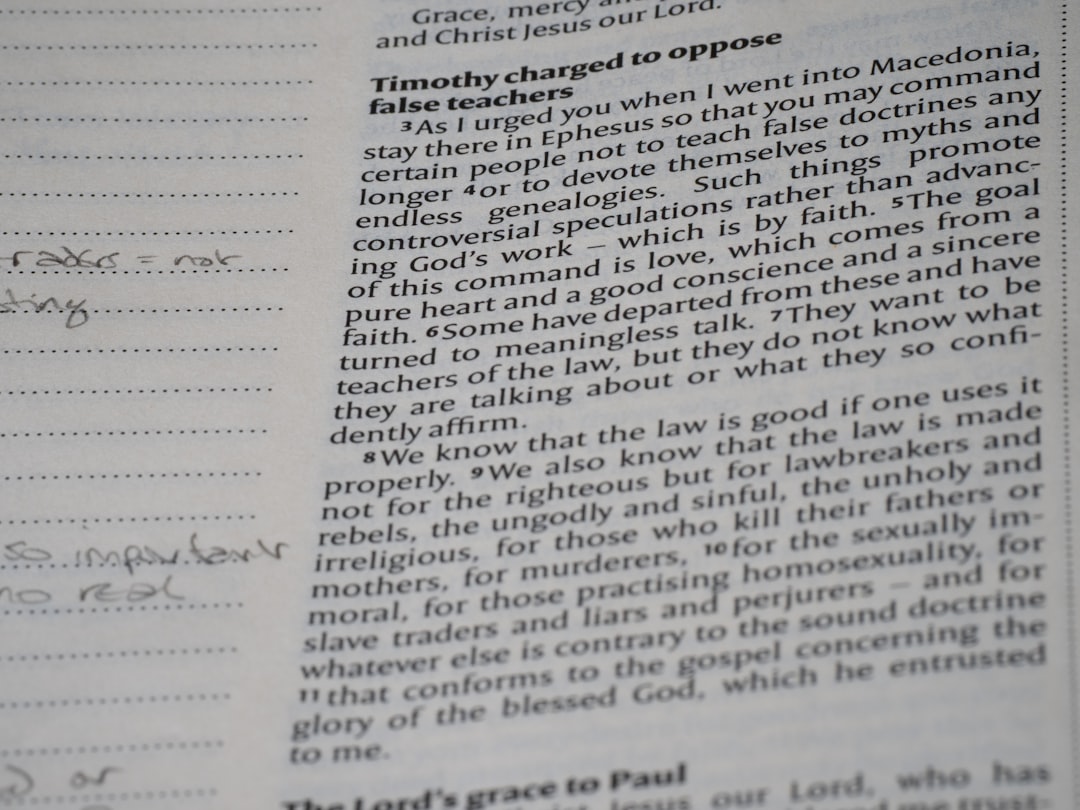 Grace, mercy
and Christ Jesus our Lord.
Timothy charged to oppose
false teachers
3As I urged you when I went into Macedonia,
stay there in Ephesus so that you may command
certain people not to teach false doctrines any
longer 4or to devote themselves to myths and
endless genealogies. Such things promote
controversial speculations rather than advanc-
ing God's work – which is by faith. 5The goal
of this command is love, which comes from a
pure heart and a good conscience and a sincere
faith. 6Some have departed from these and have
turned to meaningless talk. 7They want to be
teachers of the law, but they do not know what
they are talking about or what they so confi-
dently affirm.
8We know that the law is good if one uses it
properly. 9We also know that the law is made
not for the righteous but for lawbreakers and
rebels, the ungodly and sinful, the unholy and
irreligious, for those who kill their fathers or
mothers, for murderers, 10for the sexually im-
moral, for those practising homosexuality, for
slave traders and liars and perjurers – and for
whatever else is contrary to the sound doctrine
11that conforms to the gospel concerning the
glory of the blessed God, which he entrusted
to me.
The Lord's grace to Paul
Jesus our Lord, who has
= not
so important
no real
or